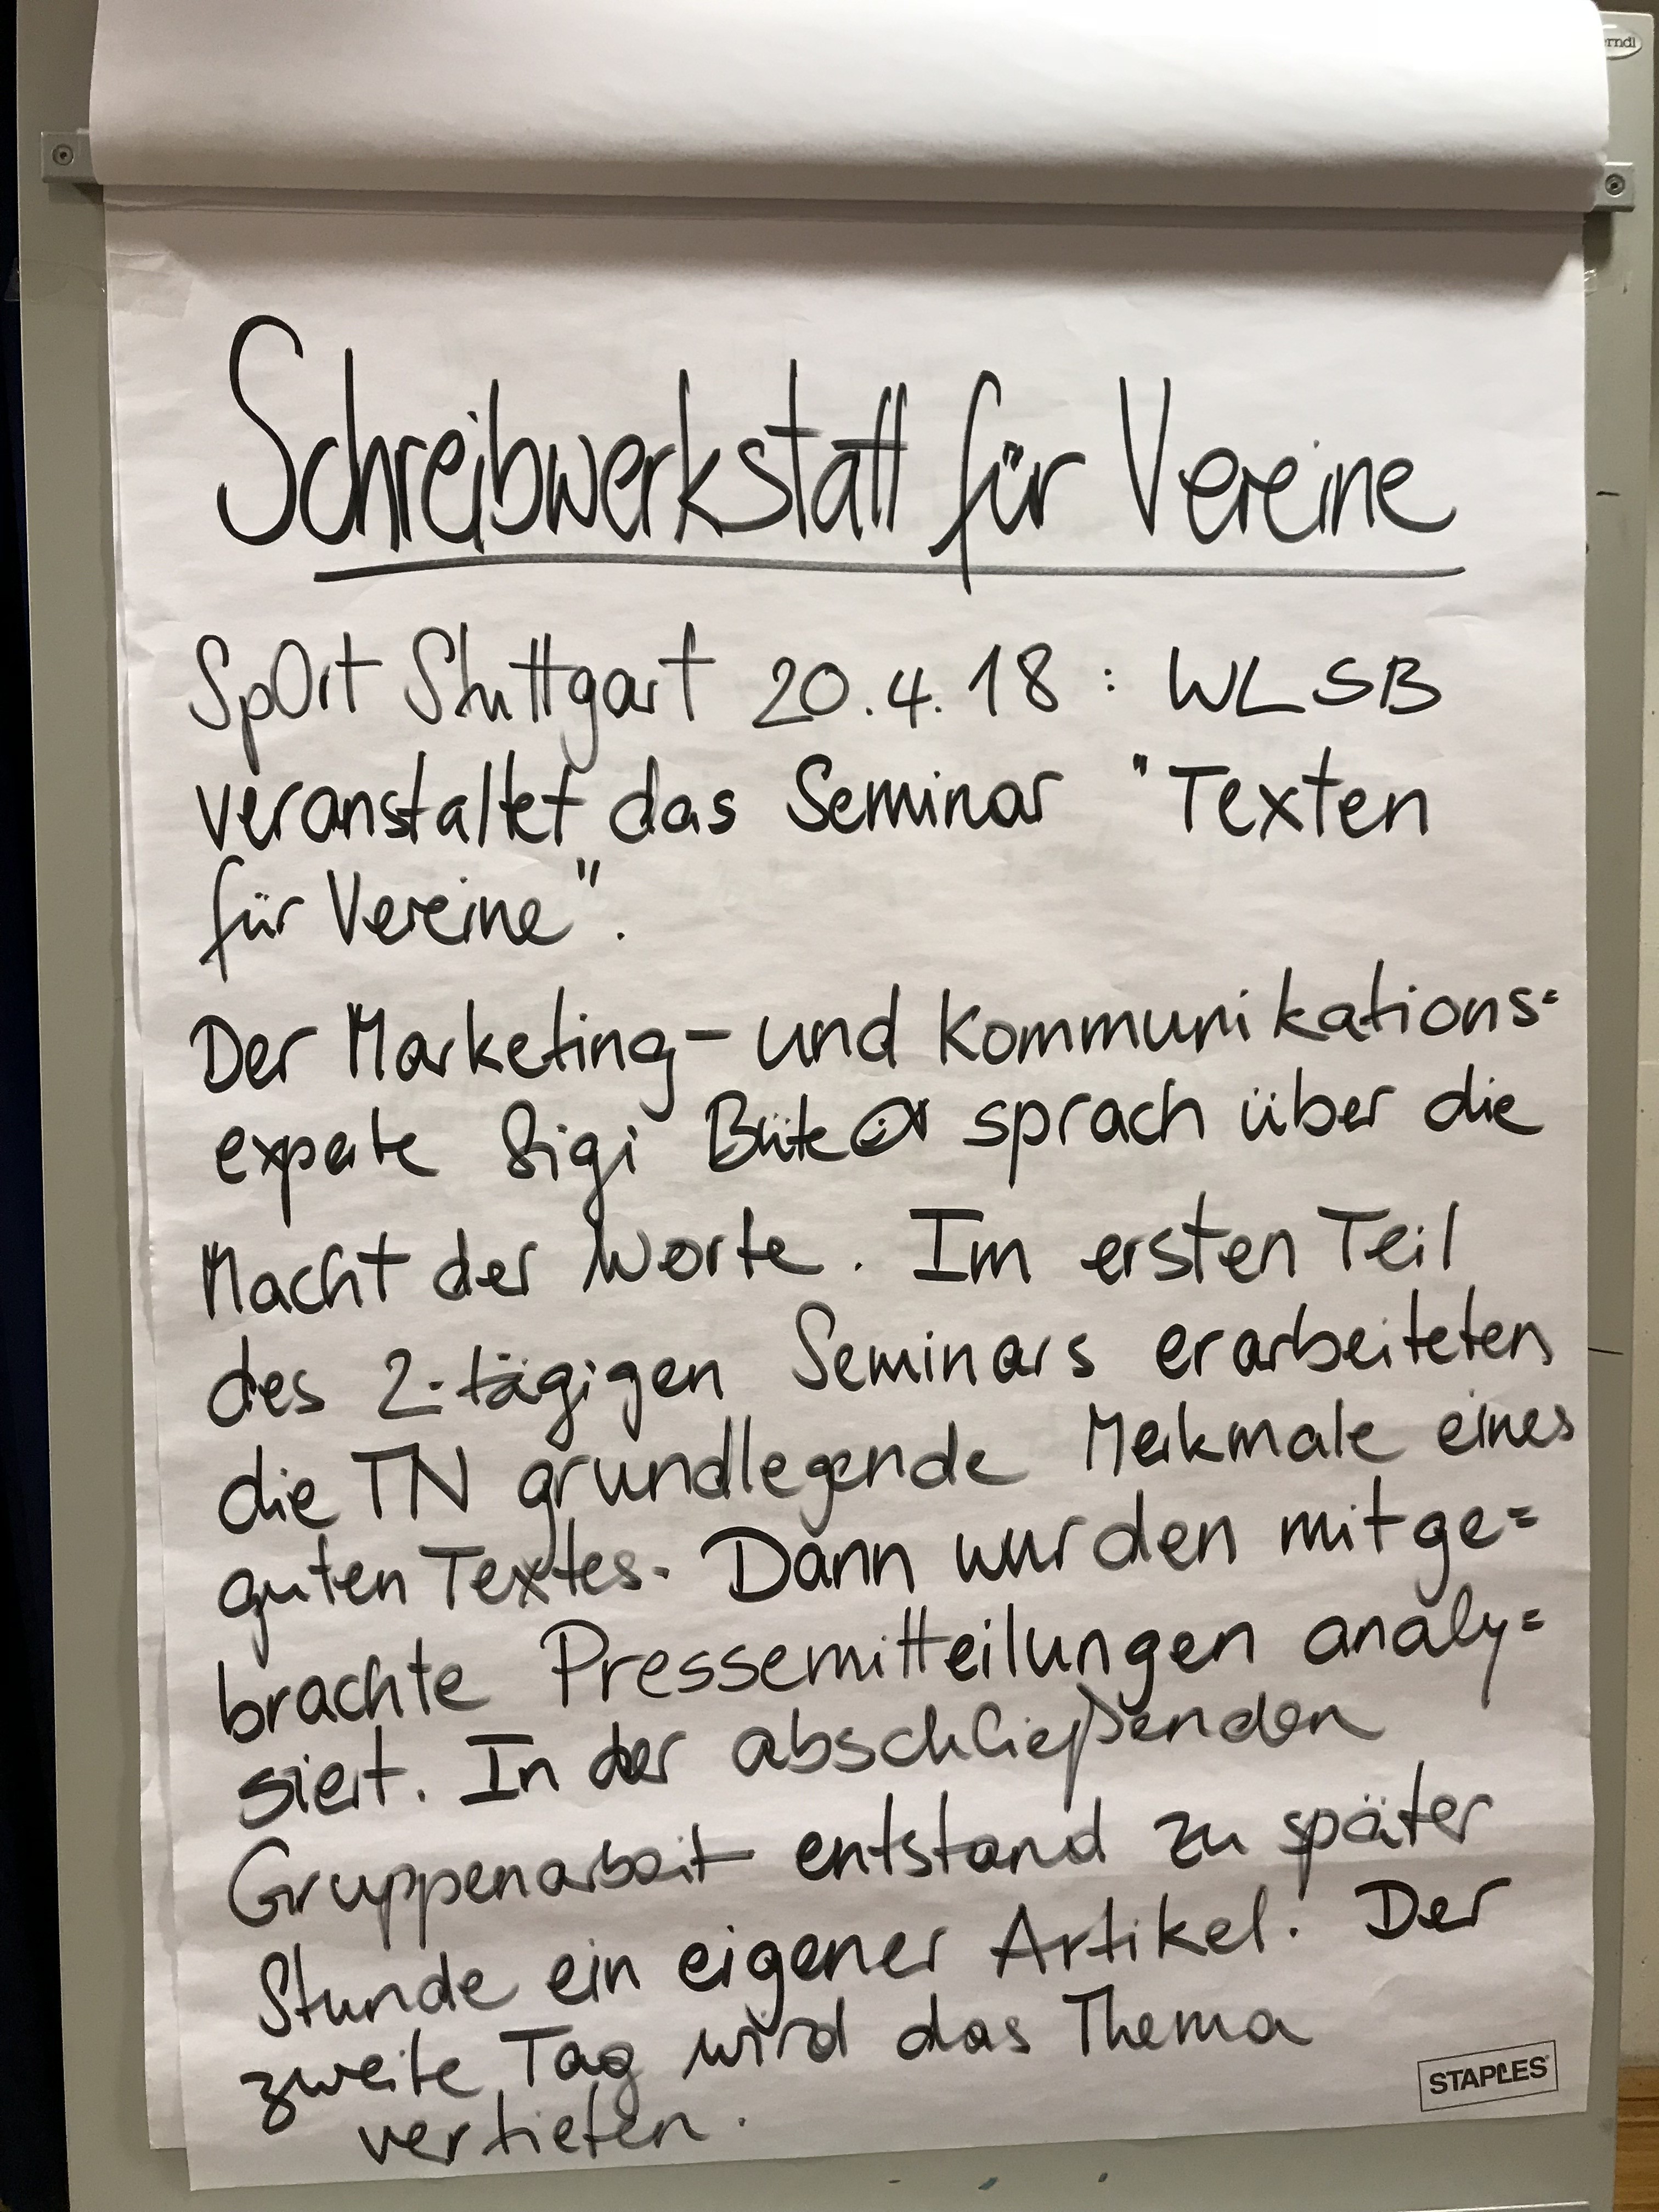 Schreibwerkstatt für Vereine
SpOrt Stuttgart 20.4.18 : WLSB
veranstaltet das Seminar "Texten
für Vereine".
Der Marketing- und Kommunikations=
experte Sigi sprach über die
Macht der Worte. Im ersten Teil
des 2-tägigen Seminars erarbeiteten
die TN grundlegende Merkmale eines
guten Textes. Dann wurden mitge=
brachte Pressemitteilungen analy=
siert. In der abschließenden
Gruppenarbeit entstand zu später
Stunde ein eigener Artikel. Der
zweite Tag wird das Thema
vertiefen.
STAPLES